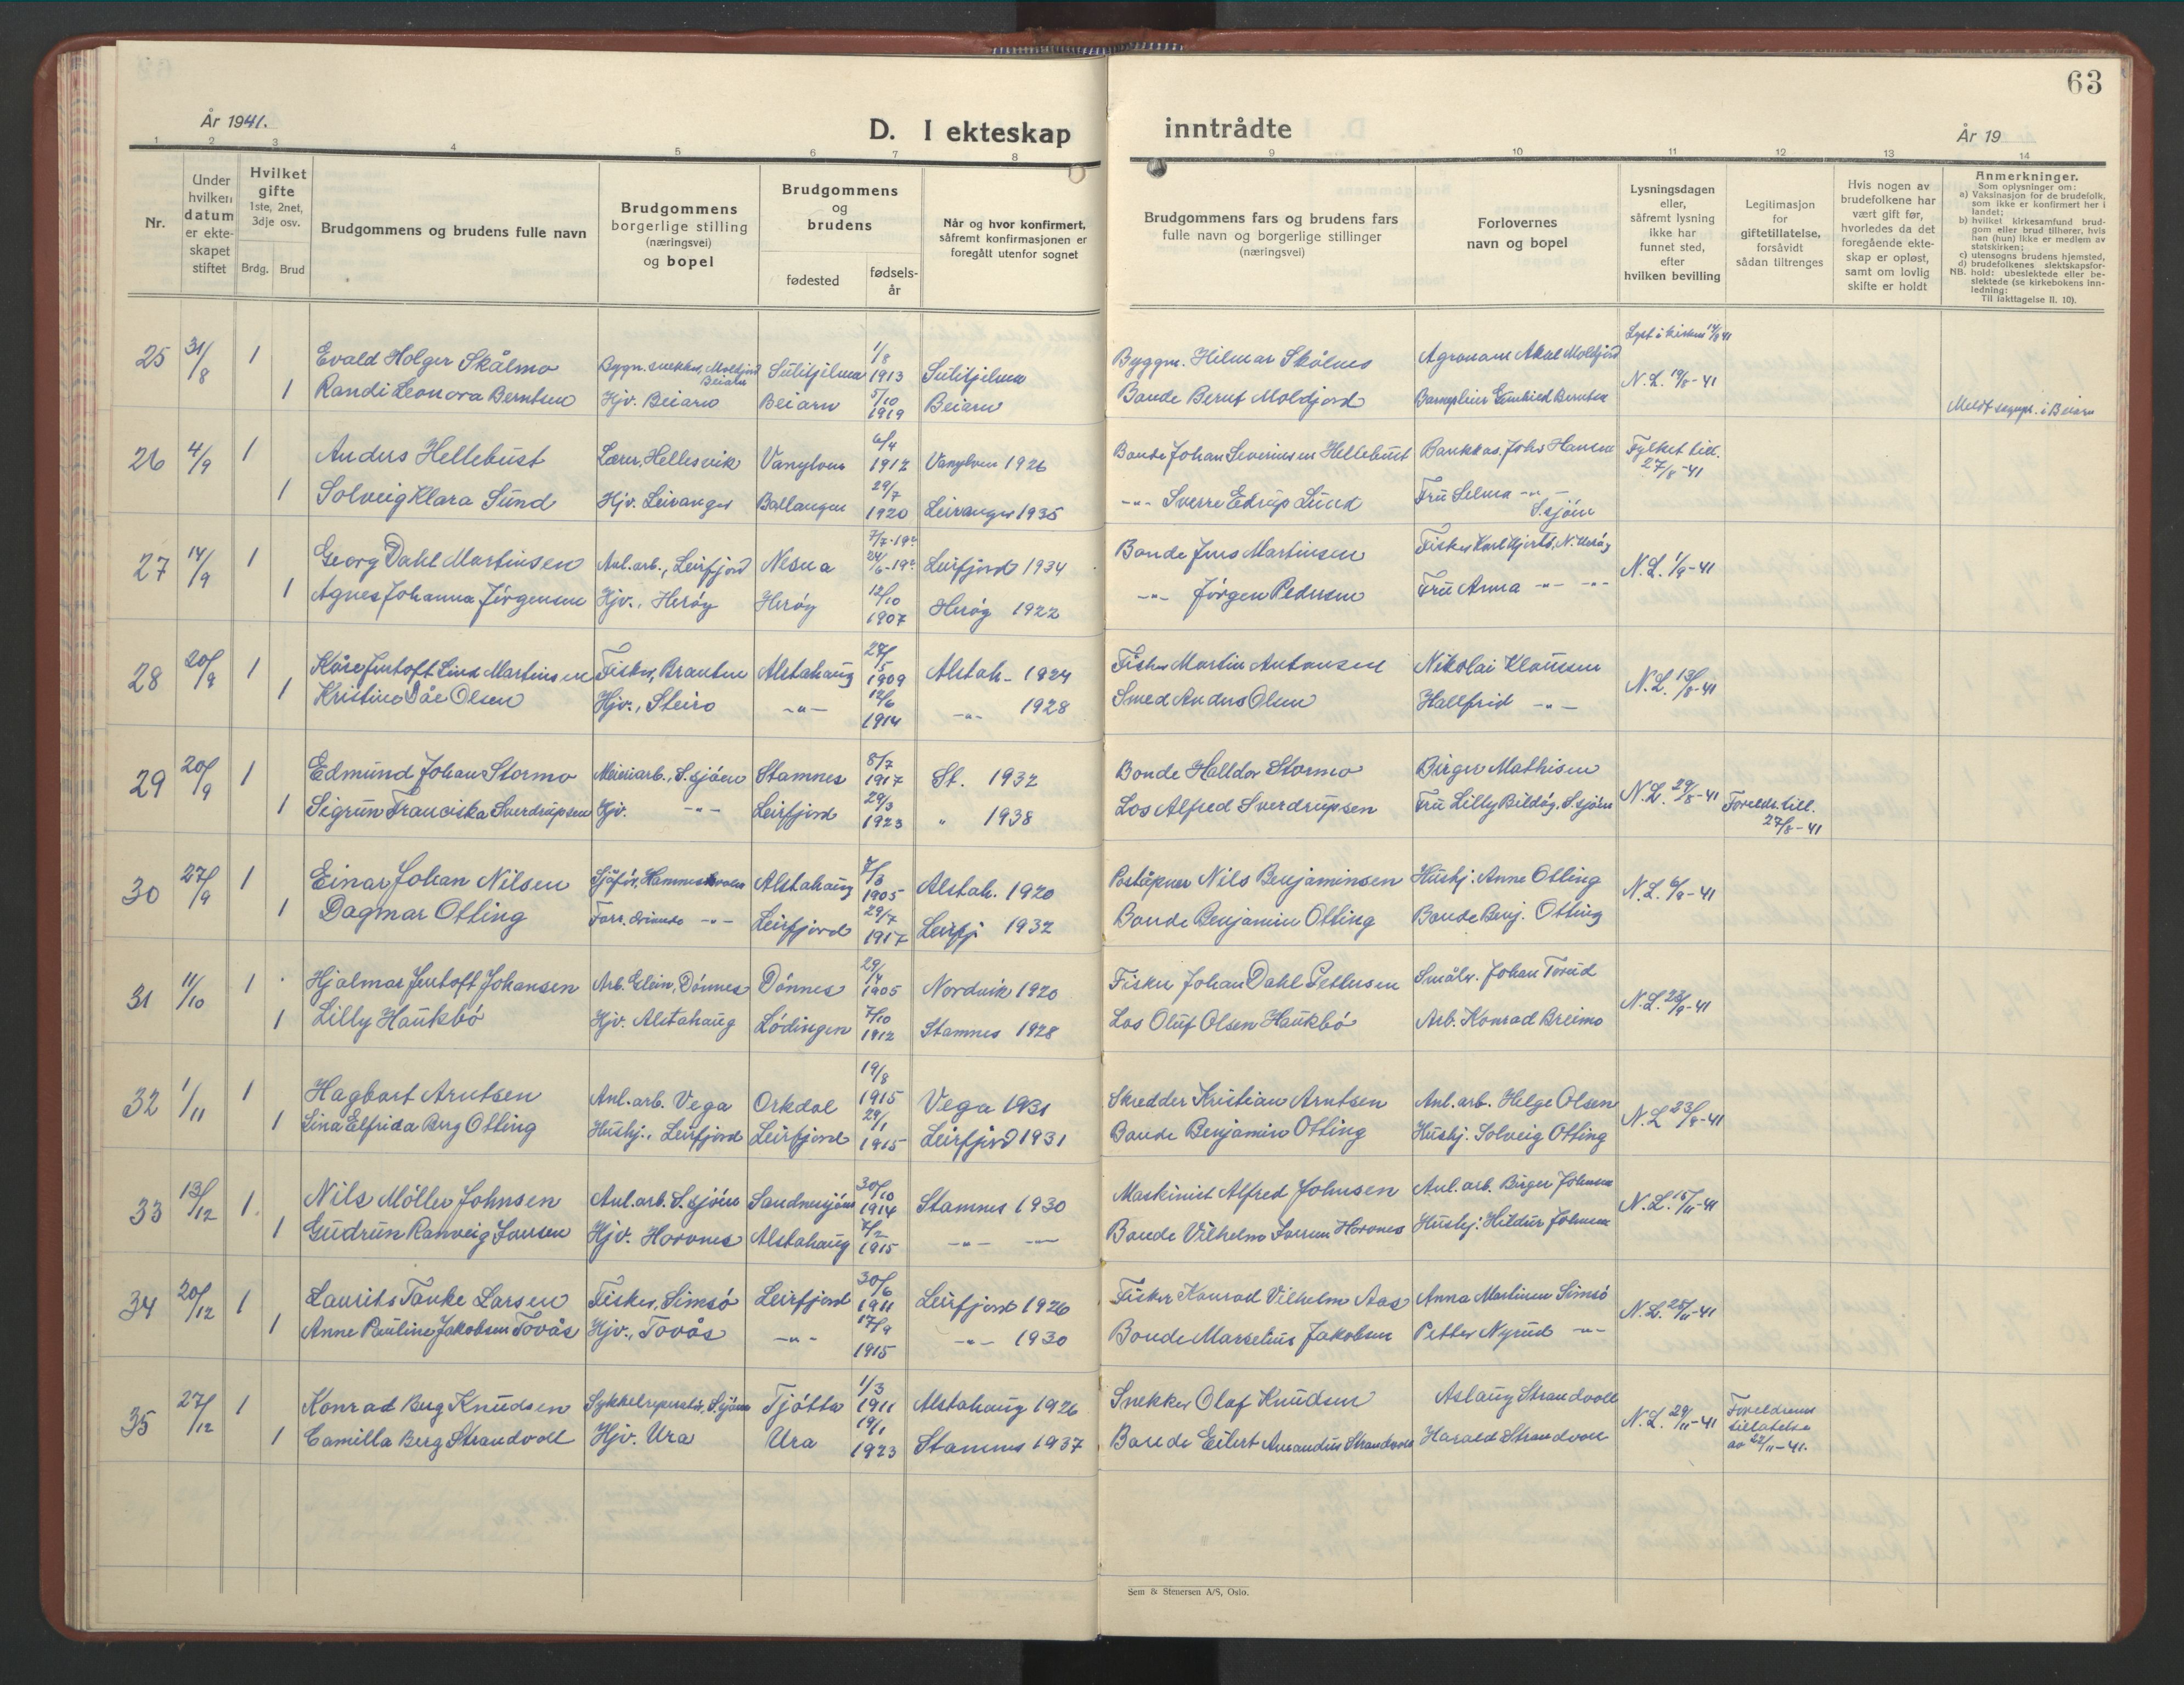 63
År 1941.
D. I ekteskap
inntrådte
År 19
1 2 3 4 5 6 7 8
9 10 11 12 13 14
Nr.
Under hvilken datum er ekteskapet stiftet
Hvilket gifte 1ste, 2net, 3dje osv.
Brdg. Brud
Brudgommens og brudens fulle navn
Brudgommens borgerlige stilling (næringsvei) og bopel
Brudgommens og brudens
fødested
fødselsår
Når og hvor konfirmert, såfremt konfirmasjonen er foregått utenfor sognet
Brudgommens fars og brudens fars fulle navn og borgerlige stillinger (næringsvei)
Forlovernes navn og bopel
Lysningsdagen eller, såfremt lysning ikke har funnet sted, efter hvilken bevilling
Legitimasjon for giftetillatelse, forsåvidt sådan tiltrenges
Hvis nogen av brudefolkene har vært gift før, hvorledes da det foregående ekteskap er opløst, samt om lovlig skifte er holdt
Anmerkninger.
Som oplysninger om:
a) Vaksinasjon for de brudefolk, som ikke er konfirmert her i landet;
b) hvilket kirkesamfund brudgom eller brud tilhører, hvis han (hun) ikke er medlem av statskirken;
c) utensogns brudens hjemsted,
d) brudefolkenes slektskapsforhold: ubeslektede eller beslektede (se kirkebokens innledning:
NB.
Til iakttagelse II. 10).
25 31/8 1 Evald Holger Skålmo Bygn. snekker, Moldjord Beiarn Sulitjelma 1/8 1913 Sulitjelma Byggm. Hilmar Skålmo Agronom Aksel Moldjord Lyst i kirken
1 Randi Leonora Berntsen Hjv. Beiarn Beiarn 5/10 1919 Beiarn Bonde Bernt Moldjord Barnepleier Gunhild Berntsen N.L. 19/8-41 Meldt sognepr. i Beiarn
26 4/9 1 Anders Hellebust Lærer, Hellesvik Vanylven 6/4 1912 Vanylven 1926 Bonde Johan Severinsen Hellebust Bankkas. Johs Hansen Fylket till. 27/8-41
1 Solveig Klara Sund Hjv. Leiranger Ballangen 29/7 1920 Leiranger 1935 -"- Sverre Edrup Sund Fru Selma -"- S.sjøen
27 14/9 1 Georg Dahl Martinsen Anl.arb., Leirfjord Nesna Leirfjord 1934 Bonde Jens Martinsen Fisker Karl Hjertø, N. Herøy N.L. 1/9-41
1 Agnes Johanna Jørgensen Hjv., Herøy Herøy 12/10 1907 Herøy 1922 -"- Jørgen Pedersen Fru Anna -"- -"-
28 20/9 1 Kåre Jentoft Lind Martinsen Fisker, Brauten Alstahaug 27/5 1909 Alstah- 1924 Fisker Martin Antonsen Nikolai Klaussen N.L. 13/8-41
1 Kristine Dåe Olsen Hjv., Steiro -"- 12/6 1914 -"- 1928 Smed Anders Olsen Hallfrid -"-
29 20/9 1 Edmund Johan Stormo Meieriarb., S.sjøen Stamnes 8/7 1917 St. 1932 Bonde Halldor Stormo Birger Mathisen N.L. 29/8-41
1 Sigrun Franciska Sverdrupsen Hjv. -"- Leirfjord 29/3 1923 " 1938 Los Alfred Sverdrupsen Fru Lilly Bildøy, S.sjøen Forelds. till. 27/8-41
30 27/9 1 Einar Johan Nilsen Sjåfør, Alstahaug 7/3 1905 Alstah. 1920 Poståpner Nils Benjaminsen Hushj. Anne Olling N.L. 6/9-41
1 Dagmar Olling -"- Leirfjord 29/7 1917 Leirfj 1932 Bonde Benjamin Olling Bonde Benj. Olling
31 11/10 1 Hjalmar Jentoft Johansen Arb. Glein, Dønnes Dønnes 29/4 1905 Nordvik 1920 Fisker Johan Dahl Pettersen Småbr. Johan Forud N.L. 23/9-41
1 Lilly Haukbø Hjv. Alstahaug Lødingen 7/10 1912 Stamnes 1928 Los Oluf Olsen Haukbø Arb. Konrad Breimo
32 1/11 1 Hagbart Arntsen Anl.arb. Vega Orkdal 19/8 1915 Vega 1931 Skredder Kristian Arntsen Anl.arb. Helge Olsen N.L. 23/8-41
1 Lina Elfrida Berg Olling Hushj., Leirfjord Leirfjord 29/1 1915 Leirfjord 1931 Bonde Benjamin Olling Hushj. Solveig Olling
33 13/12 1 Nils Møller Johnsen Anl.arb. S.sjøen Sandnessjøen 30/10 1914 Stamnes 1930 Maskinist Alfred Johnsen Anl.arb. Birger Johnsen N.L. 15/11-41
1 Gudrun Ranveig Larsen Hjv. Horvnes Alstahaug 7/2 1915 -"- -"- Bonde Vilhelm Larsen Horvnes Hushj. Hildur Johnsen
34 20/12 1 Laurits Tanke Larsen Fisker, Simsø Leirfjord 30/6 1911 Leirfjord 1926 Fisker Konrad Vilhelm Aas Anna Martinsen Simsø N.L. 25/11-41
1 Anne Pauline Jakobsen Tovås Hjv., Tovås -"- 17/9 1915 -"- 1930 Bonde Marselius Jakobsen Petter Nyrud -"-
35 27/12 1 Konrad Berg Knudsen Sykkelreparatør, S.sjøen Tjøtta 1/3 1911 Alstahaug 1926 Snekker Olaf Knudsen Aslaug Strandvoll N.L. 29/11-41 Foreldrenes tillatelse av 22/11-41.
1 Camilla Berg Strandvoll Hjv. Ura Ura 19/1 1923 Stamnes 1937 Bonde Eilert Amandus Strandvoll Harald Strandvoll
Sem & Stenersen A/S, Oslo.